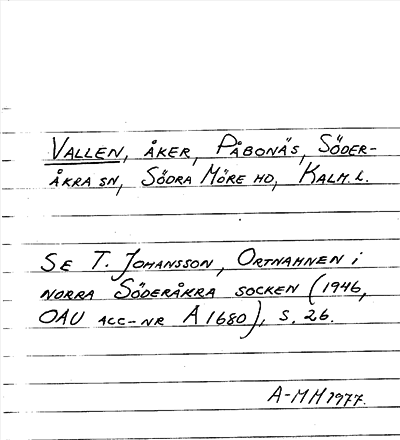 Vallen, åker, Påbonäs, Söder-
åkra sn, Södra Möre hd, Kalm. l.
Se T. Johansson, Ortnamnen i
norra Söderåkra socken (1946,
OAU acc-nr A 1680), s. 26.
A-MH 1977.